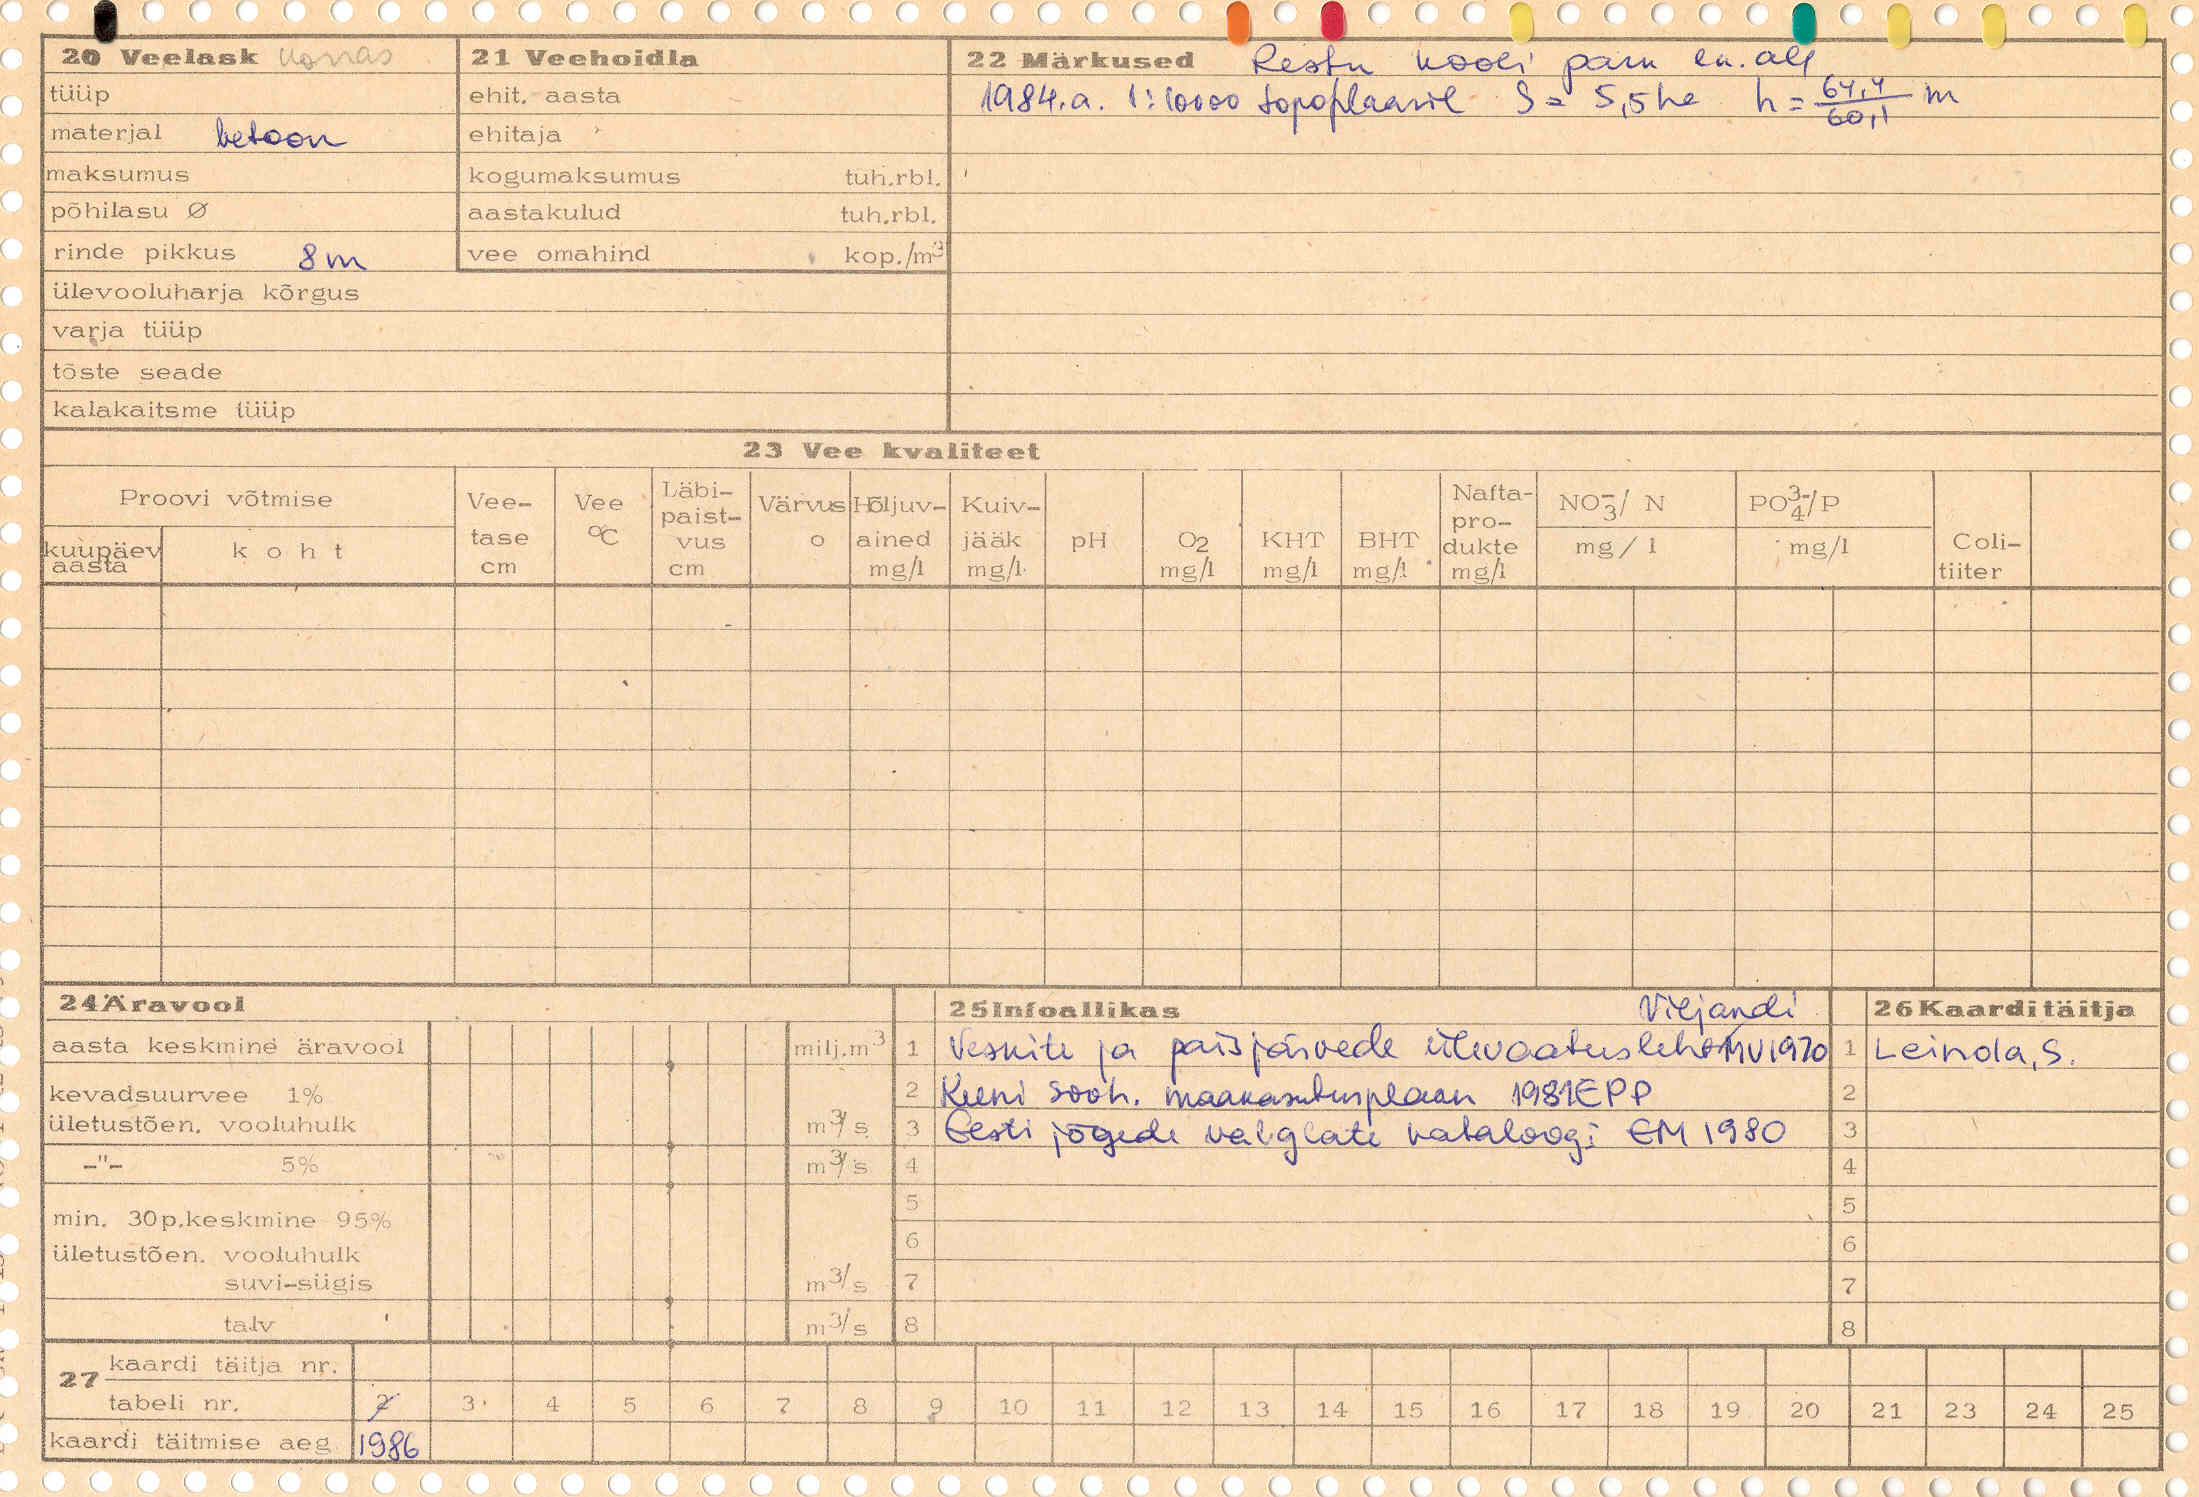 20 Veelask korras
tüüp
materjal betoon
maksumus
põhilasu Ø
rinde pikkus 8m
ülevooluharja kõrgus
varja tüüp
tõste seade
kalakaitsme tüüp
21 Veehoidla
ehit. aasta
ehitaja
kogumaksumus tuh.rbl.
aastakulud tuh.rbl.
vee omahind kop./m³
22 Märkused Restu kooli park
1984.a. 1:10000 topoplaanil S = 5,5 ha h = 64,4/60,1 m
23 Vee kvaliteet
Proovi võtmise
kuupäev aasta
koht
Vee-tase cm
Vee °C
Läbi-paist-vus cm
Värvus o
Hõljuv-ained mg/l
Kuiv-jääk mg/l
pH
O2 mg/l
KHT mg/l
BHT mg/l
Nafta-pro-dukte mg/l
NO₃⁻/ N mg/l
PO₄³⁻/P mg/l
Coli-tiiter
24 Äravool
aasta keskmine äravool milj.m³
kevadsuurvee 1%
ületustõen. vooluhulk m³/s
-"- 5% m³/s
min. 30p.keskmine 95%
ületustõen. vooluhulk
suvi-sügis m³/s
talv m³/s
25 Infoallikas
Viljandi
1 Veskite ja paisjärvede ülevaatusleht MV1970
2 Keeni sooh. maakasutusplaan 1981 EPP
3 Eesti jõgede valglate kataloogi EM 1980
4
5
6
7
8
26 Kaarditäitja
1 Leinola, S.
2
3
4
5
6
7
8
27 kaardi täitja nr.
tabeli nr. 2 3 4 5 6 7 8 9 10 11 12 13 14 15 16 17 18 19 20 21 23 24 25
kaardi täitmise aeg 1986